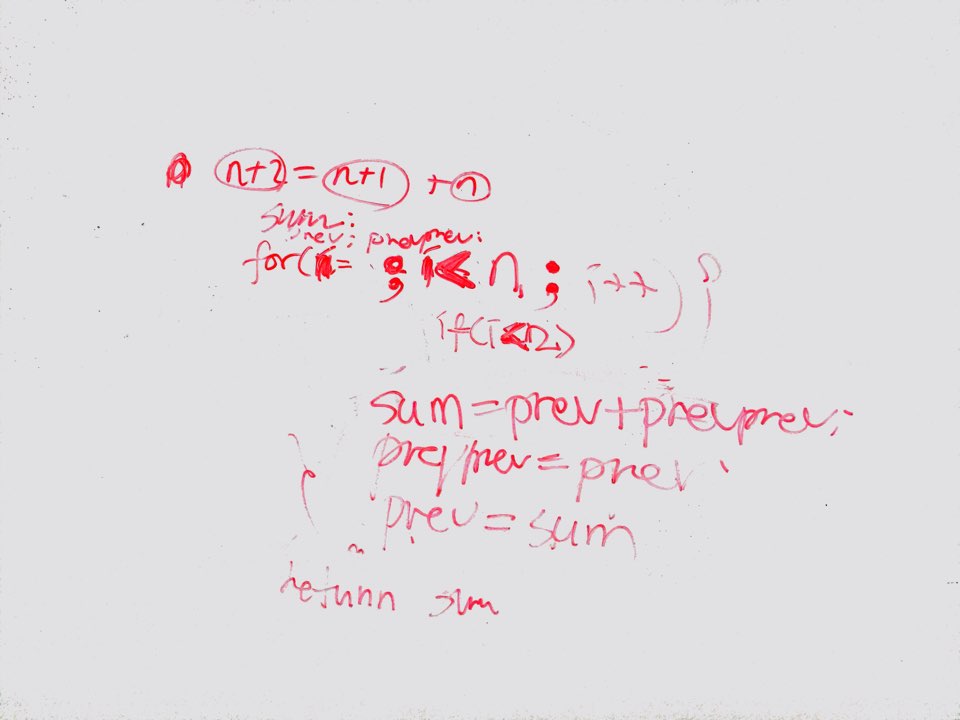 n+2 = n+1 + n
sum:
prev: prevprev:
for(i= ; i< n ; i++) {
if(i<2)
sum=prev+prevprev;
prevprev=prev;
prev=sum
}
return sum